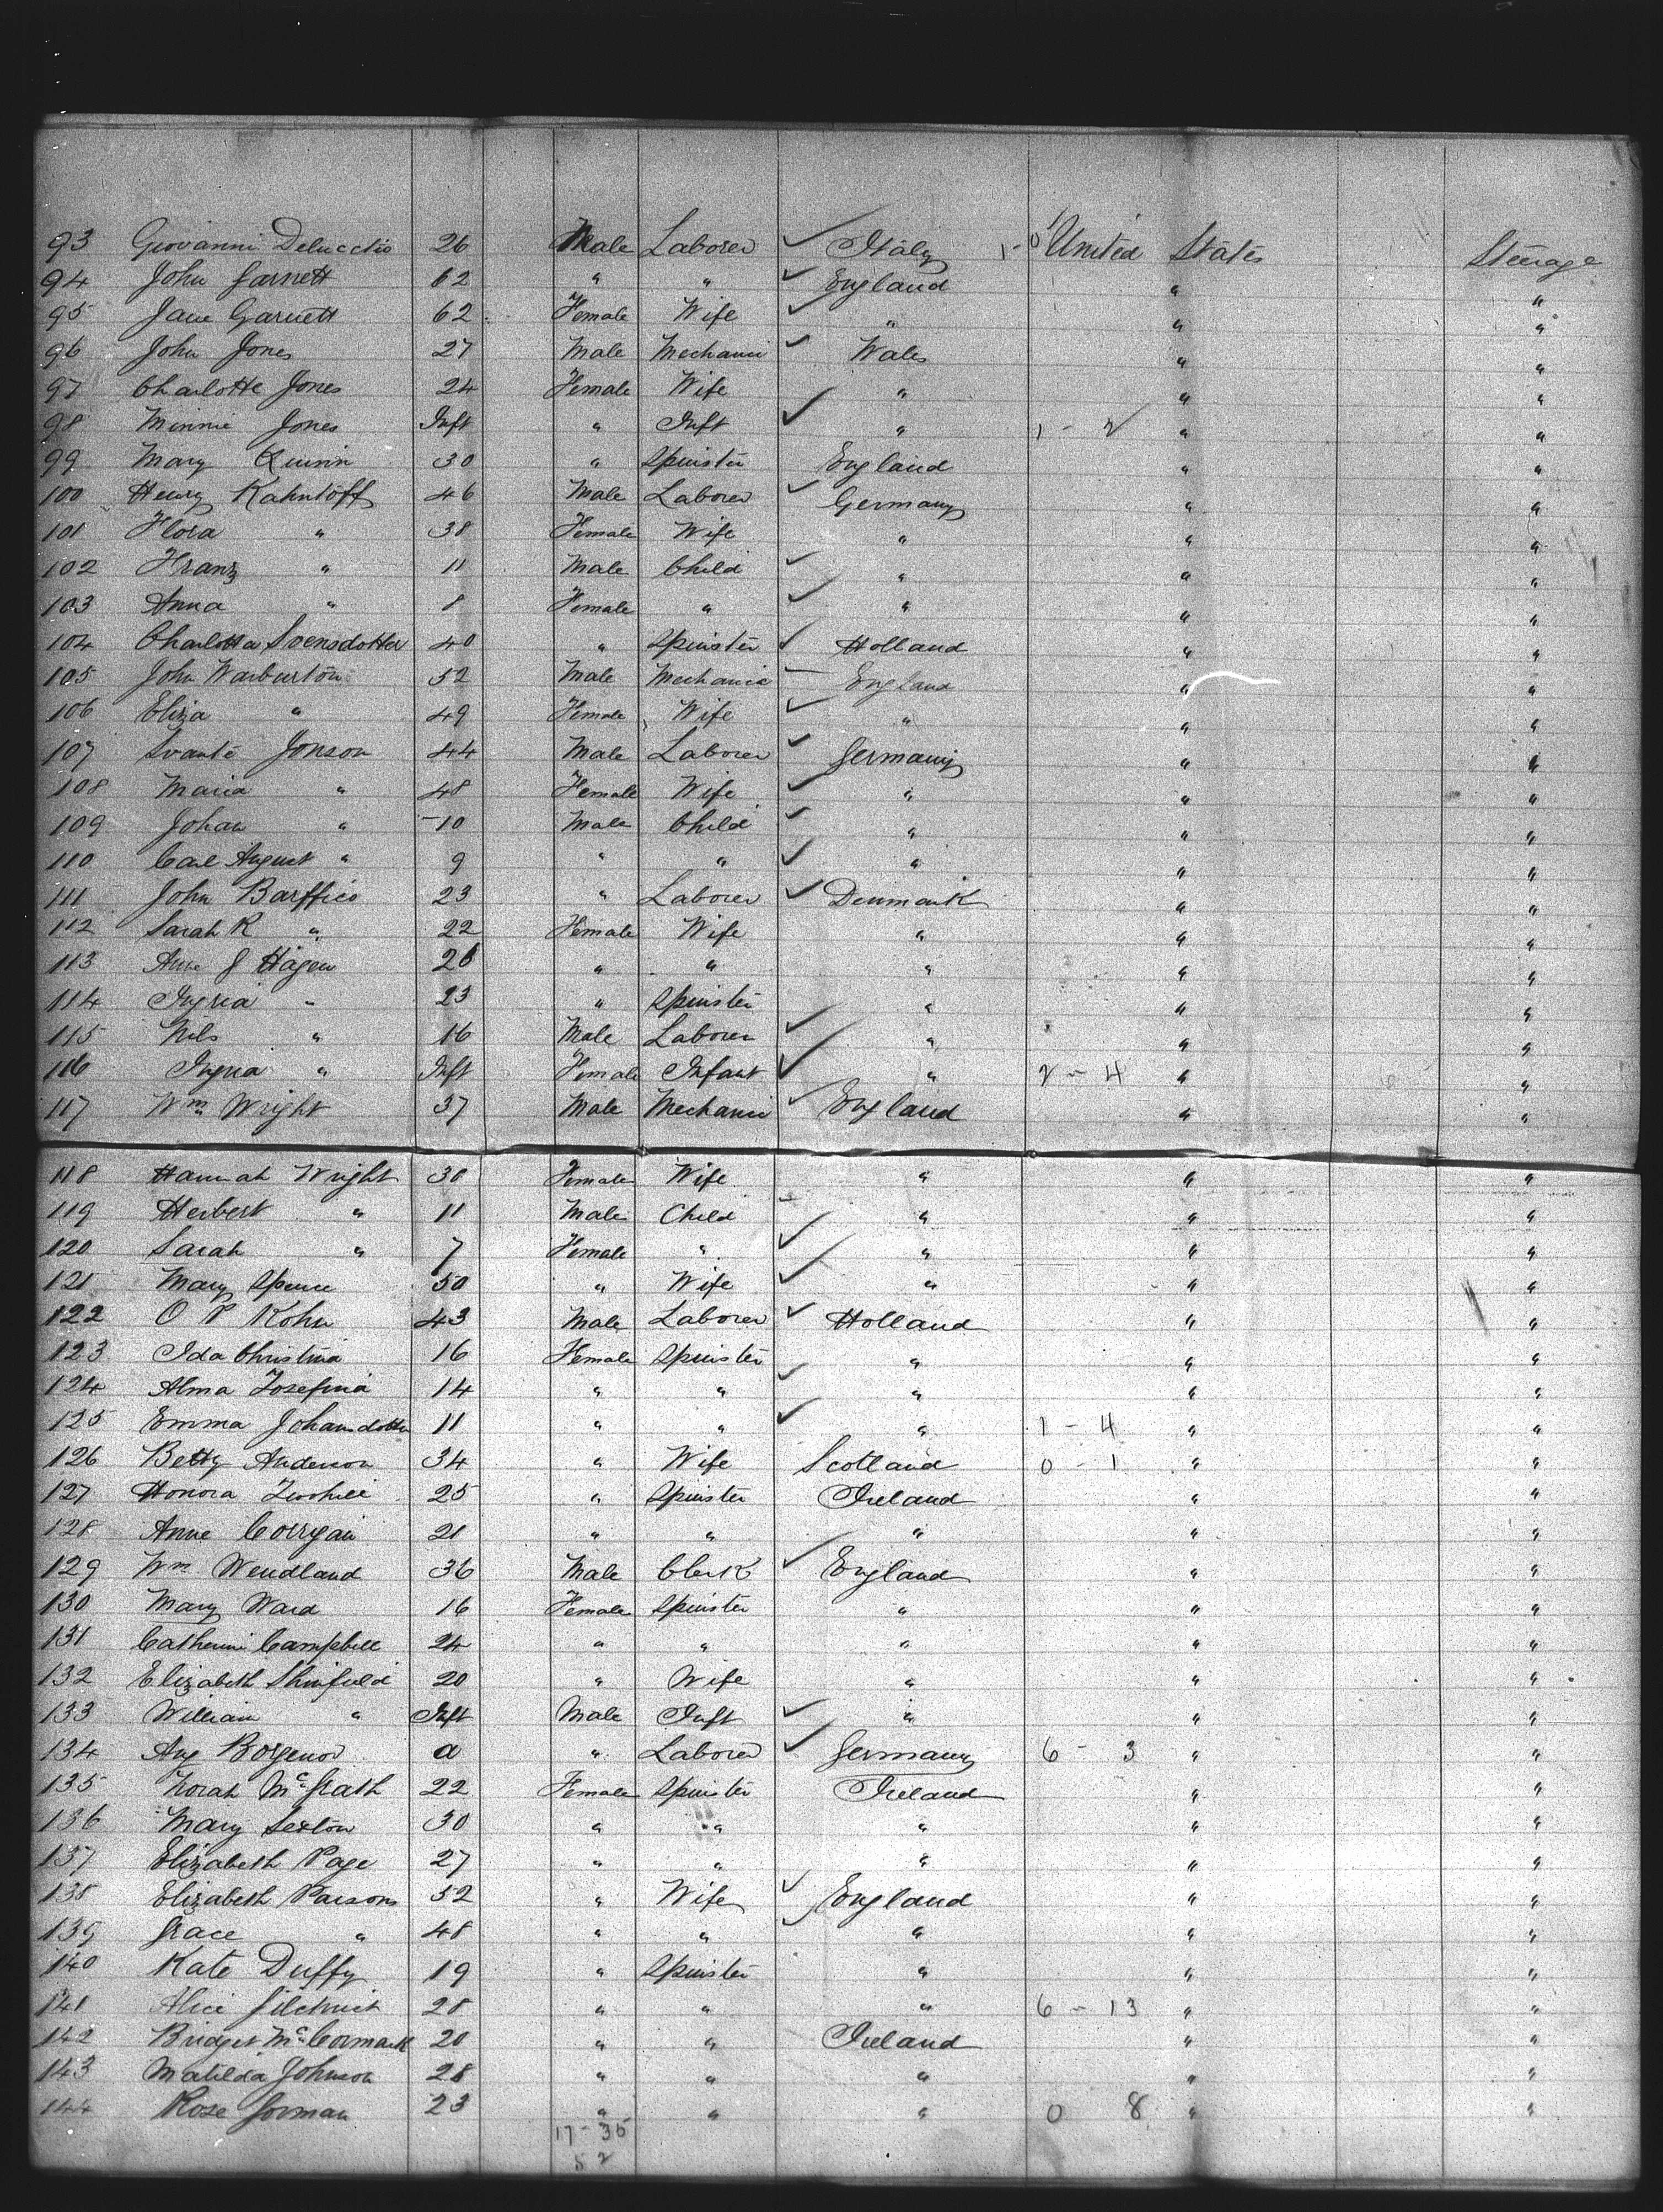 93 Giovanni Delucctis 26 Male Laborer ✓ Italy 1-0 United States Steerage
94 John Garnett 62 " " ✓ England " "
95 Jane Garnett 62 Female Wife ✓ " " "
96 John Jones 27 Male Mechanic ✓ Wales " "
97 Charlotte Jones 24 Female Wife " " "
98 Minnie Jones Inft " Inft ✓ " 1 - 2 " "
99 Mary Quinn 30 " Spinster England " "
100 Henry Kahntoff 46 Male Laborer ✓ Germany " "
101 Flora " 38 Female Wife " " "
102 Franz " 11 Male Child ✓ " " "
103 Anna " 8 Female " ✓ " " "
104 Charlotta Svensdotter 40 " Spinster ✓ Holland " "
105 John Warburton 52 Male Mechanic England " "
106 Eliza " 49 Female Wife ✓ " " "
107 Svante Jonson 44 Male Laborer ✓ Germany " "
108 Maria " 48 Female Wife ✓ " " "
109 Johan " 10 Male Child ✓ " " "
110 Carl August " 9 " " ✓ " " "
111 John Barffico 23 " Laborer ✓ Denmark " "
112 Sarah R " 22 Female Wife " " "
113 Ane J Hagen 26 " " " " "
114 " 23 " Spinster " " "
115 Nils " 16 Male Laborer ✓ " " "
116 " Inft Female Infant ✓ " 2 - 4 " "
117 Wm Wright 37 Male Mechanic ✓ England " "
118 Hannah Wright 38 Female Wife " " "
119 Herbert " 11 Male Child " " "
120 Sarah " 7 Female " ✓ " " "
121 Mary Spence 50 " Wife ✓ " " "
122 O P Kohn 43 Male Laborer ✓ Holland " "
123 Ida Christina 16 Female Spinster " " "
124 Alma Josefina 14 " " ✓ " " "
125 Emma Johansdotter 11 " " ✓ " 1 - 4 " "
126 Betty Anderson 34 " Wife Scotland 0 - 1 " "
127 Honora 25 " Spinster Ireland " "
128 Anne Corrigan 21 " " " " "
129 Wm Wendland 36 Male Clerk ✓ England " "
130 Mary Ward 16 Female Spinster " " "
131 Catherine Campbell 24 " " " " "
132 Elizabeth Shinfield 20 " Wife " " "
133 William " Inft Male Inft ✓ " " "
134 Aug Borgenor a " Laborer ✓ Germany 6 - 3 " "
135 Norah McGrath 22 Female Spinster Ireland " "
136 Mary Sexton 30 " " " " "
137 Elizabeth Page 27 " " " " "
138 Elizabeth Parsons 52 " Wife ✓ England " "
139 Grace " 48 " " ✓ " " "
140 Kate Duffy 19 " Spinster " " "
141 Alice Gilchrist 28 " " " 6 - 13 " "
142 Bridget McCormack 20 " " Ireland " "
143 Matilda Johnson 28 " " " " "
144 Rose Gorman 23 " " " 0 8 " "
17-35
52